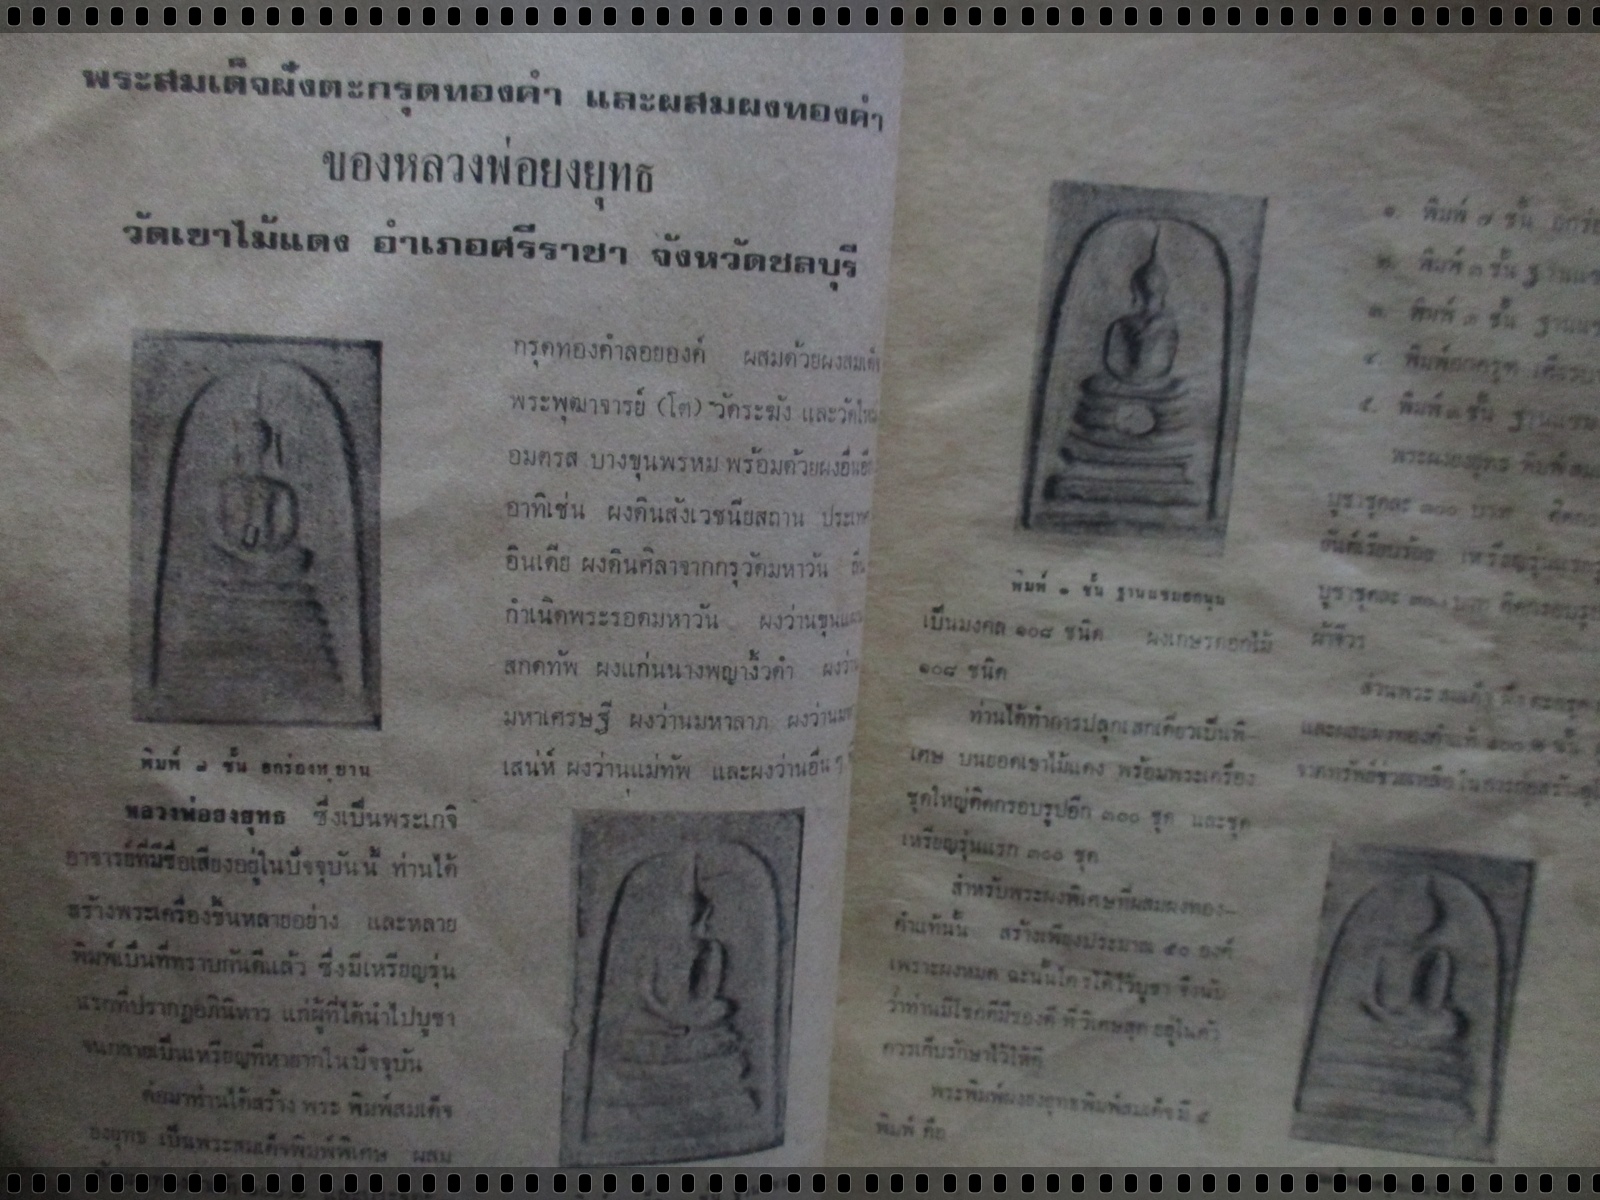 พระสมเด็จฝังตะกรุดทองคำ และผสมผงทองคำ
ของหลวงพ่อยงยุทธ
วัดเขาไม้แดง อำเภอศรีราชา จังหวัดชลบุรี
พิมพ์ ๗ ชั้น อกร่องหูยาน
หลวงพ่อยงยุทธ ซึ่งเป็นพระเกจิ
อาจารย์ที่มีชื่อเสียงอยู่ในปัจจุบันนี้ ท่านได้
สร้างพระเครื่องขึ้นหลายอย่าง และหลาย
พิมพ์เป็นที่ทราบกันดีแล้ว ซึ่งมีเหรียญรุ่น
แรกที่ปรากฏอภินิหาร แก่ผู้ที่ได้นำไปบูชา
จนกลายเป็นเหรียญที่หายากในปัจจุบัน
ต่อมาท่านได้สร้าง พระ พิมพ์สมเด็จ
ยงยุทธ เป็นพระสมเด็จพิมพ์พิเศษ ผสม
กรุดทองคำลอยองค์ ผสมด้วยผงสมเด็จ
พระพุฒาจารย์ (โต) วัดระฆัง และวัดใหม่
อมตรส บางขุนพรหม พร้อมด้วยผงอื่นอีก
อาทิเช่น ผงดินสังเวชนียสถาน ประเทศ
อินเดีย ผงดินศิลาจากกรุวัดมหาวัน
กำเนิดพระรอดมหาวัน ผงว่านขุนแผน
สกดทัพ ผงแก่นนางพญางิ้วดำ ผงว่าน
มหาเศรษฐี ผงว่านมหาลาภ ผงว่านมหา
เสน่ห์ ผงว่านแม่ทัพ และผงว่านอื่น ๆ
พิมพ์ ๓ ชั้น ฐานแซมอกนูน
เป็นมงคล ๑๐๘ ชนิด ผงเกษรดอกไม้
๑๐๘ ชนิด
ท่านได้ทำการปลุกเสกเดี่ยวเป็นพิ-
เศษ บนยอดเขาไม้แดง พร้อมพระเครื่อง
ชุดใหญ่ติดกรอบรูปอีก ๓๐๐ ชุด และชุด
เหรียญรุ่นแรก ๓๐๐ ชุด
สำหรับพระผงพิเศษที่ผสมผงทอง-
คำแท้นั้น สร้างเพียงประมาณ ๕๐ องค์
เพราะผงหมด ฉะนั้นใครได้ไว้บูชา จึงนับ
ว่าท่านมีโชคดีมีของดี ที่วิเศษสุด อยู่ในตัว
ควรเก็บรักษาไว้ให้ดี
พระพิมพ์ผงยงยุทธพิมพ์สมเด็จ มี ๕
พิมพ์ คือ
๑. พิมพ์ ๗ ชั้น
๒. พิมพ์ ๓ ชั้น
๓. พิมพ์ ๓ ชั้น
๔. พิมพ์อกครุฑ
๕. พิมพ์ ๓ ชั้น
พระผงยงยุทธ พิมพ์
บูชาชุดละ ๓๐๐ บาท
ยันต์เรียบร้อย เหรียญรุ่นแรก
บูชาชุดละ
ผ้าจีวร
ส่วนพระสมเด็จ ฝังตะกรุด
และผสมผงทองคำแท้